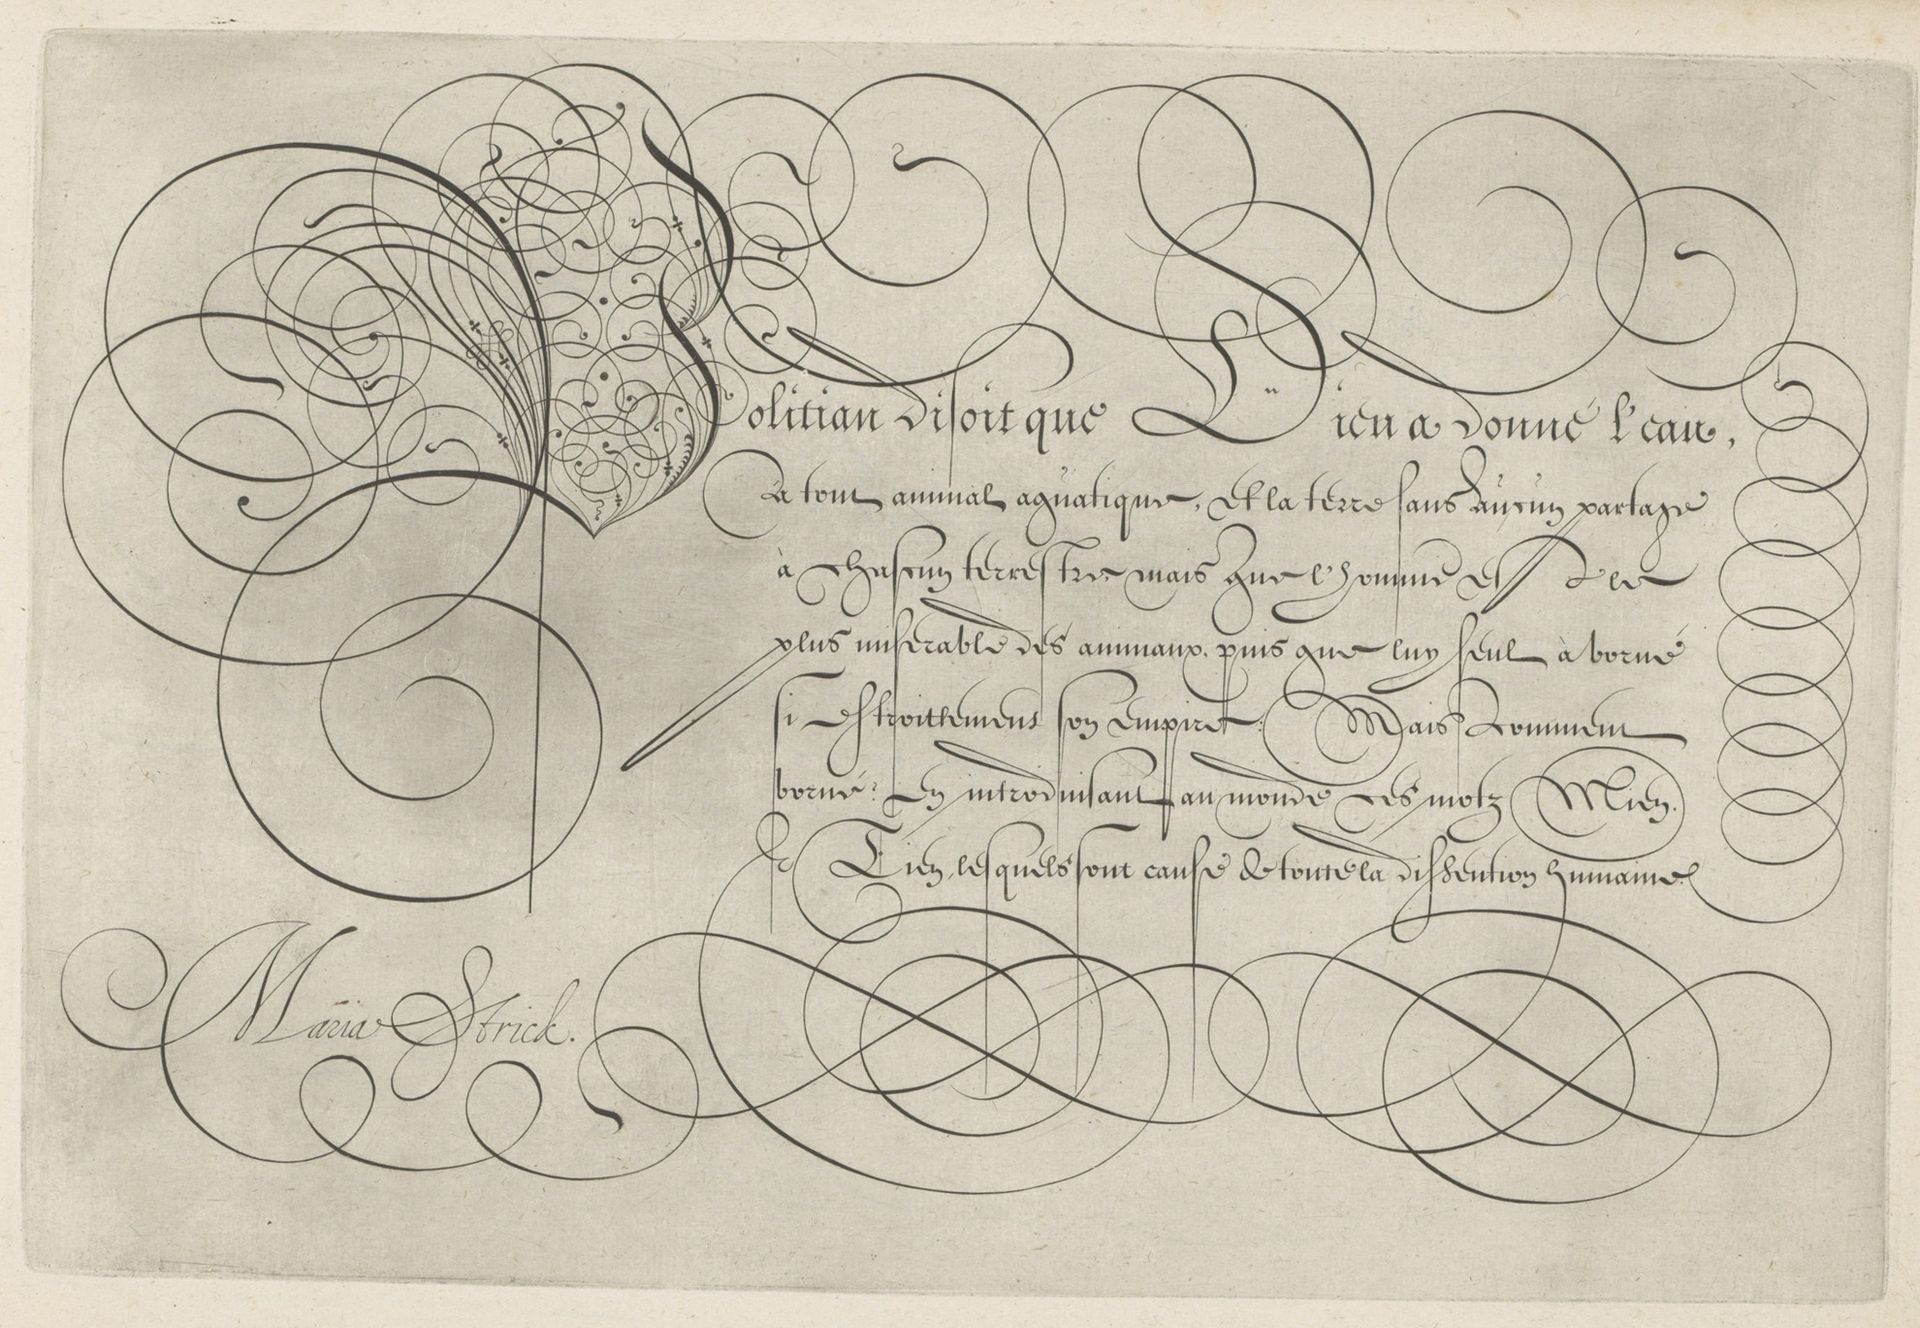 Politian disoit que Dieu a donné l'eau,
a tout animal aquatique, et la terre sans aucun partage
à chascun terrestre mais que l'homme est le
plus miserable des animaux, puis que luy seul à borné
si estroittement son empire: Mais comment
borné? En introduisant au monde ces motz Mien.
et Tien, lesquels sont cause de toute la dissention humaine.
Maria Strick.